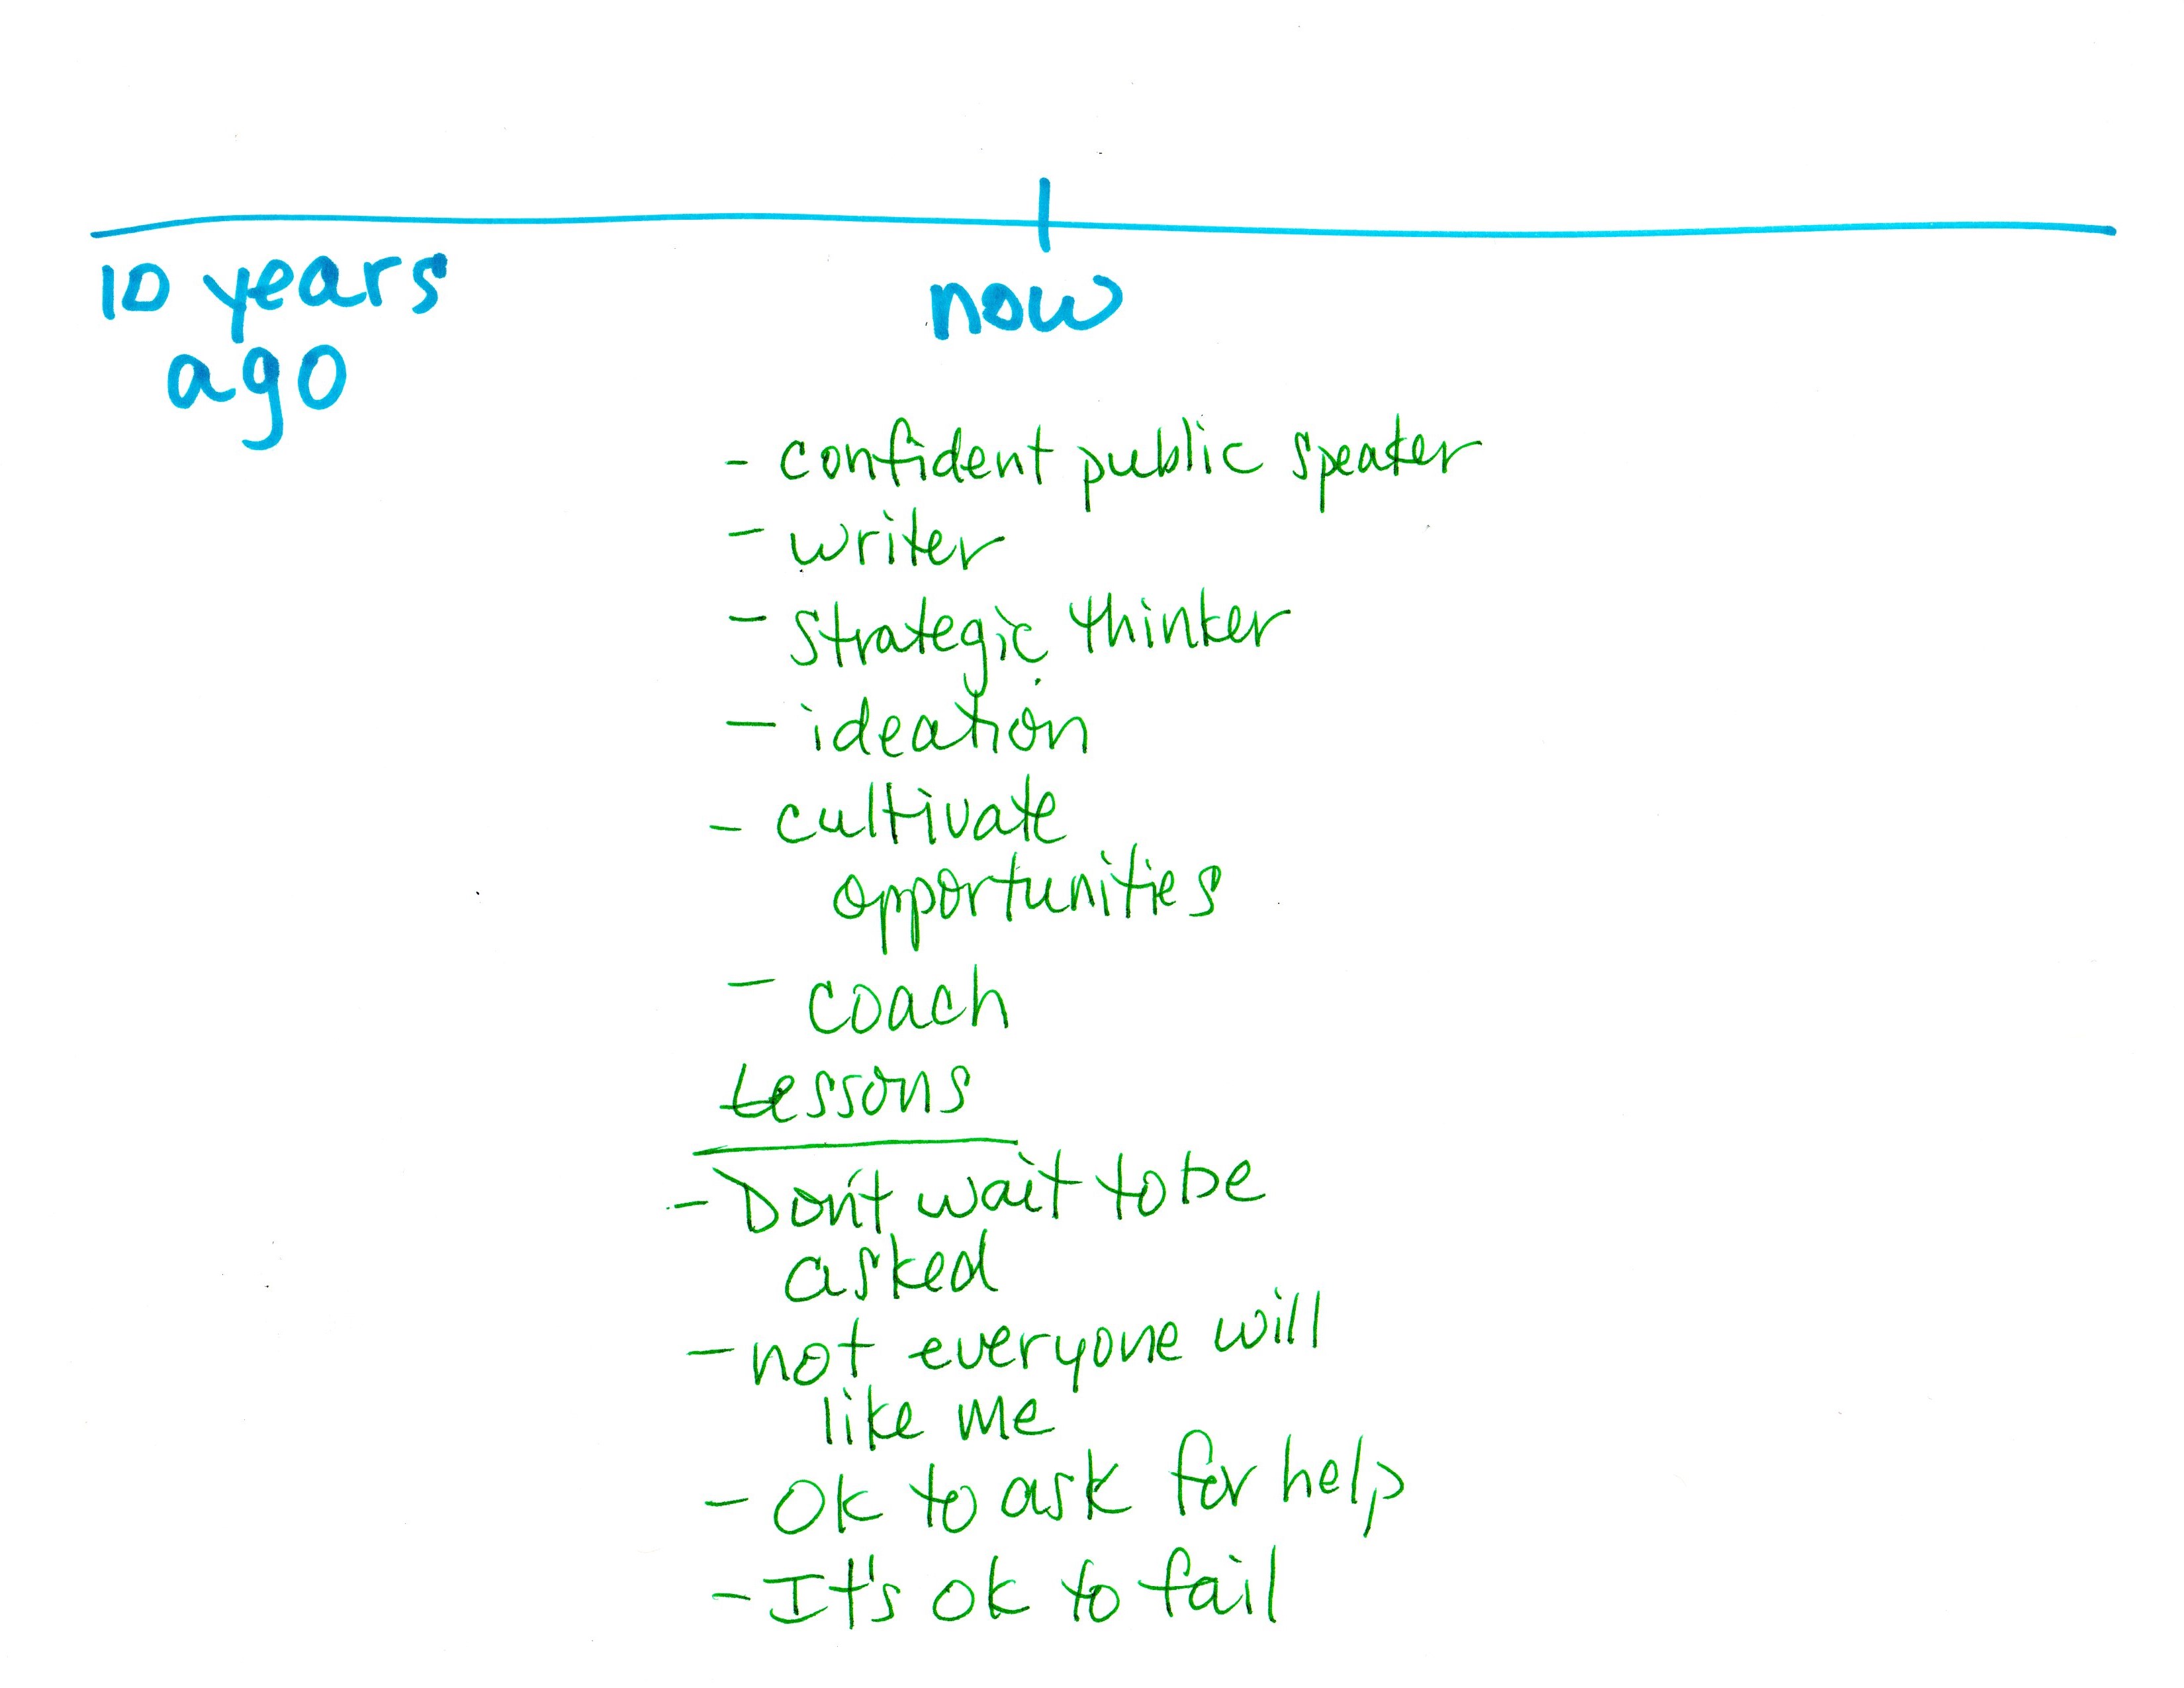 10 years
ago
now
- confident public speaker
- writer
- strategic thinker
- ideation
- cultivate
opportunities
- coach
Lessons
- Don't wait to be
asked
- not everyone will
like me
- Ok to ask for help
- It's ok to fail